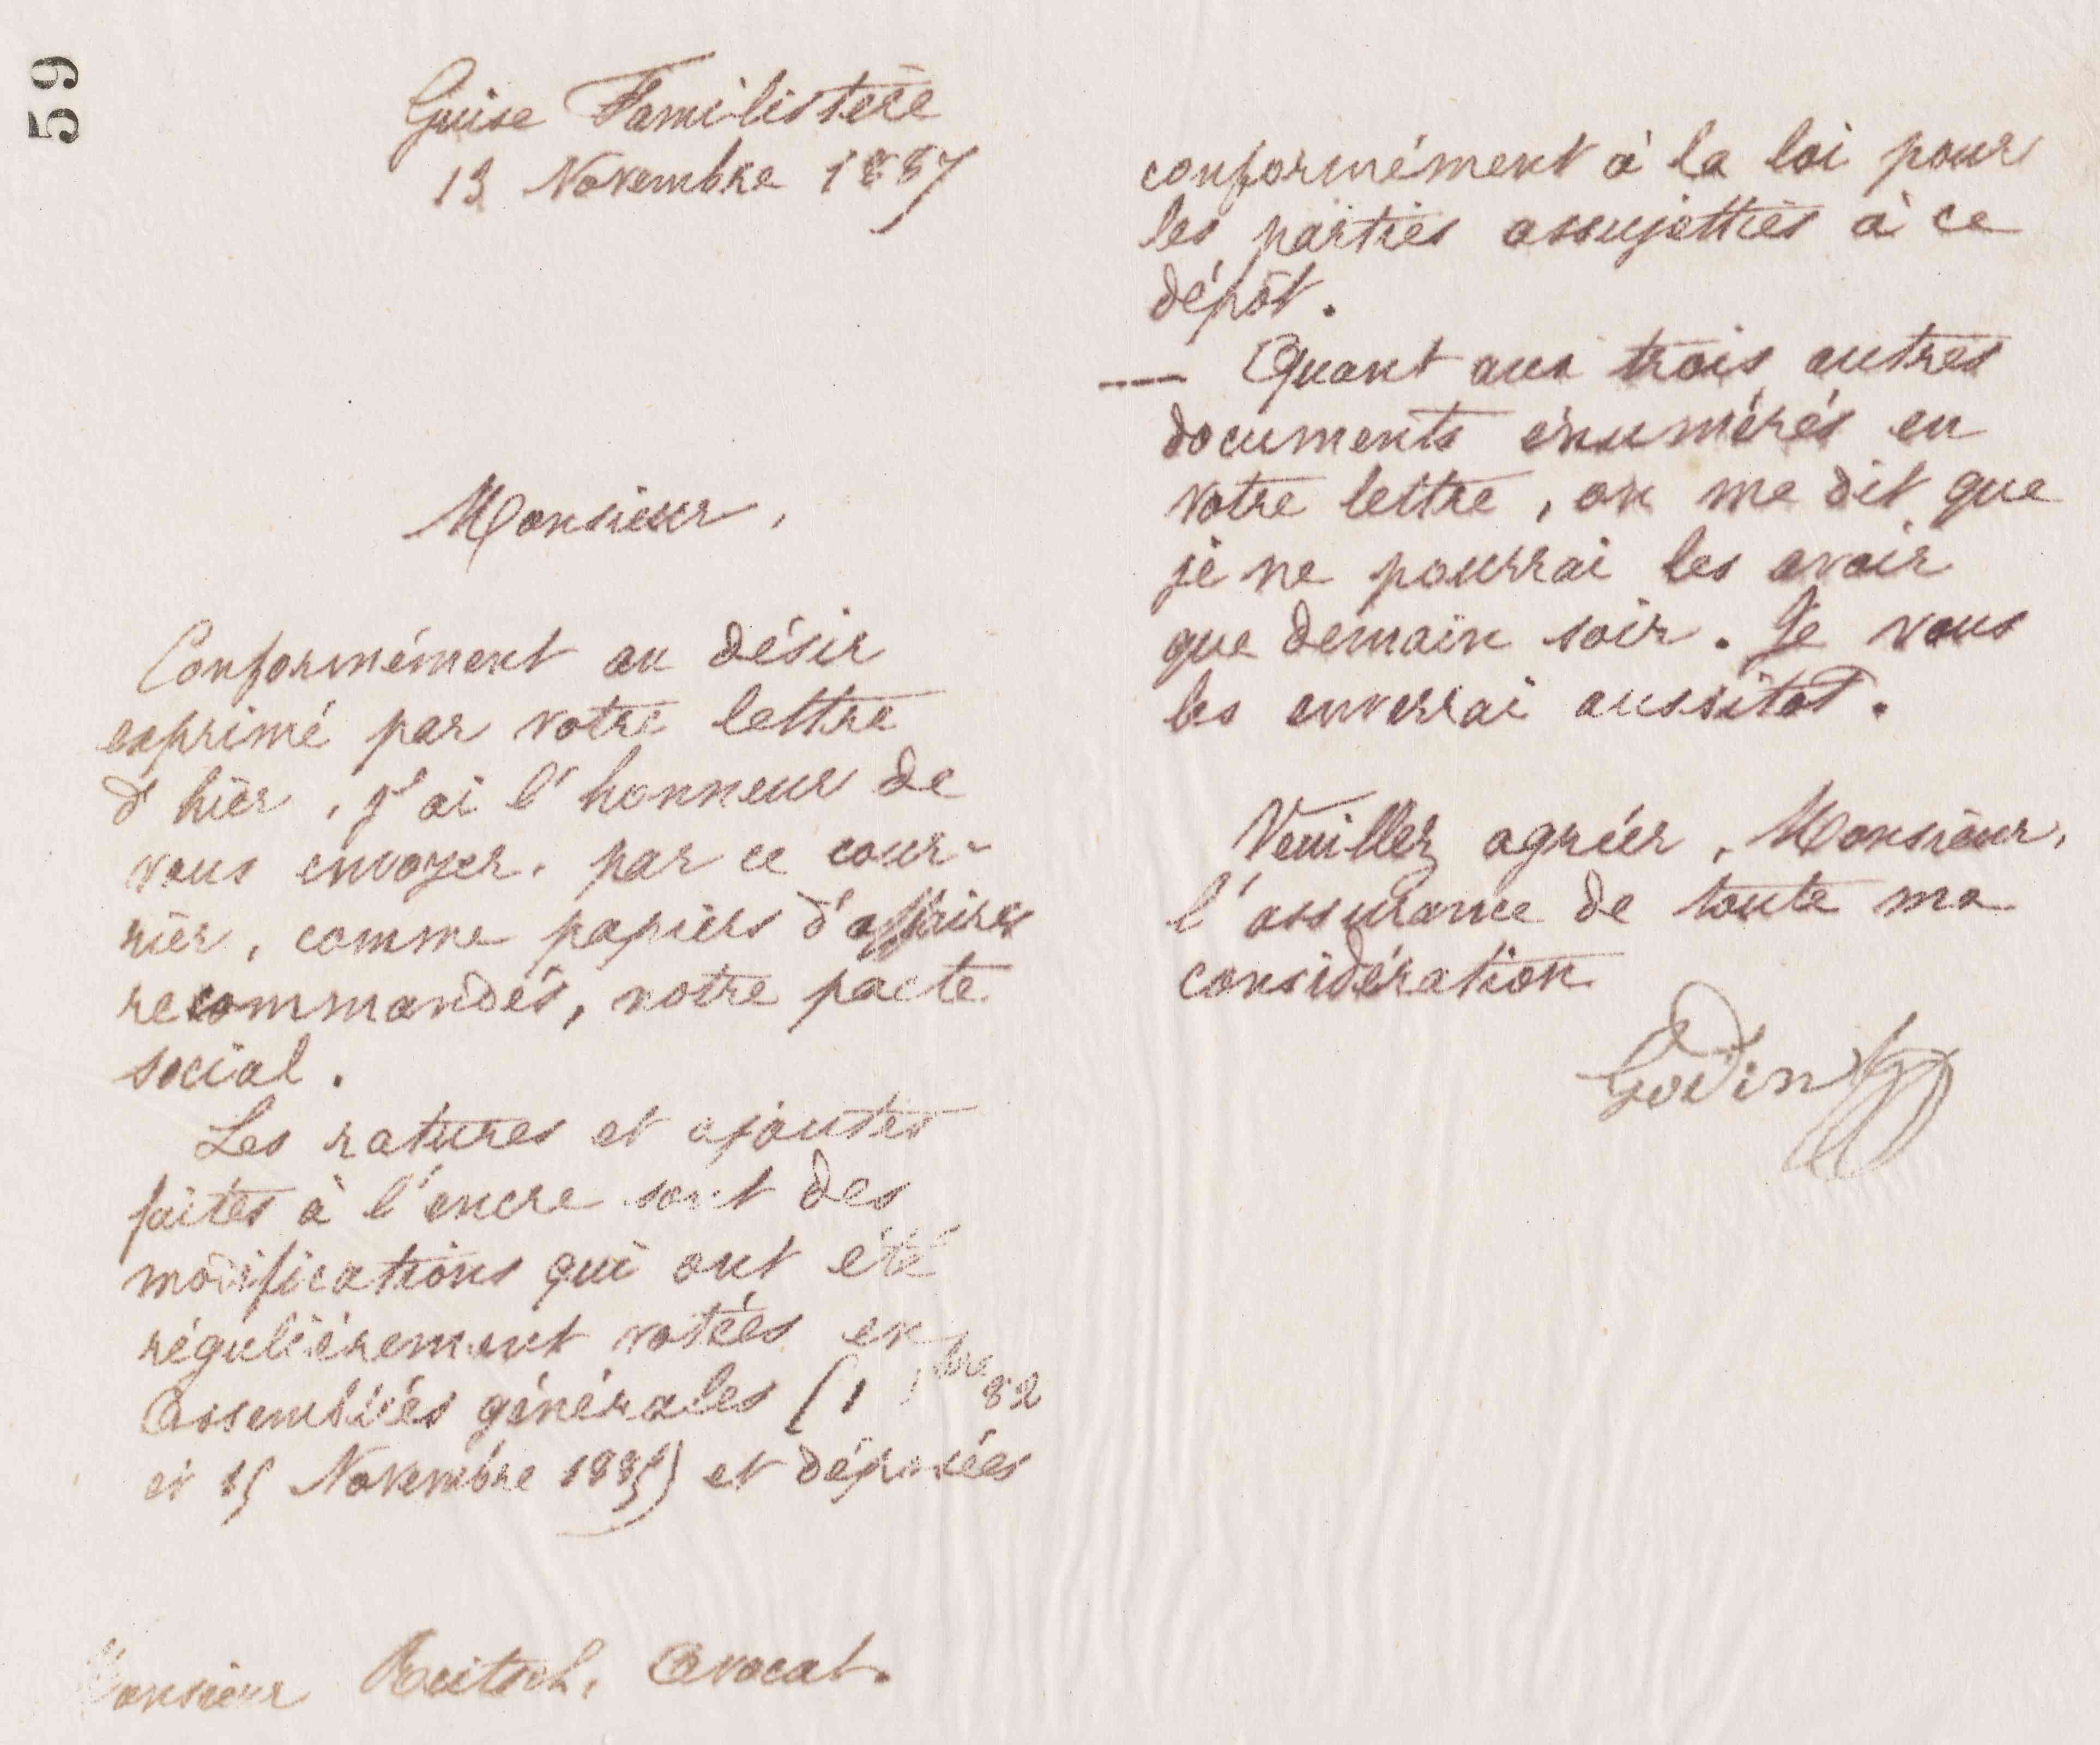 59
Guise Familistère
13 Novembre 1887
Monsieur,
Conformément au désir
exprimé par votre lettre
d'hier, j'ai l'honneur de
vous envoyer, par ce cour-
rier, comme papiers d'affaires
recommandés, notre pacte
social.
Les ratures et ajoutes
faites à l'encre sont des
modifications qui ont été
régulièrement votées en
Assemblées générales (1 bre 82
et 15 Novembre 1885) et déposées
Monsieur Avocat.
conformément à la loi pour
les parties assujetties à ce
dépôt.
— Quant aux trois autres
documents énumérés en
votre lettre, on me dit que
je ne pourrai les avoir
que demain soir. Je vous
les enverrai aussitôt.
Veuillez agréer, Monsieur,
l'assurance de toute ma
considération
Godin